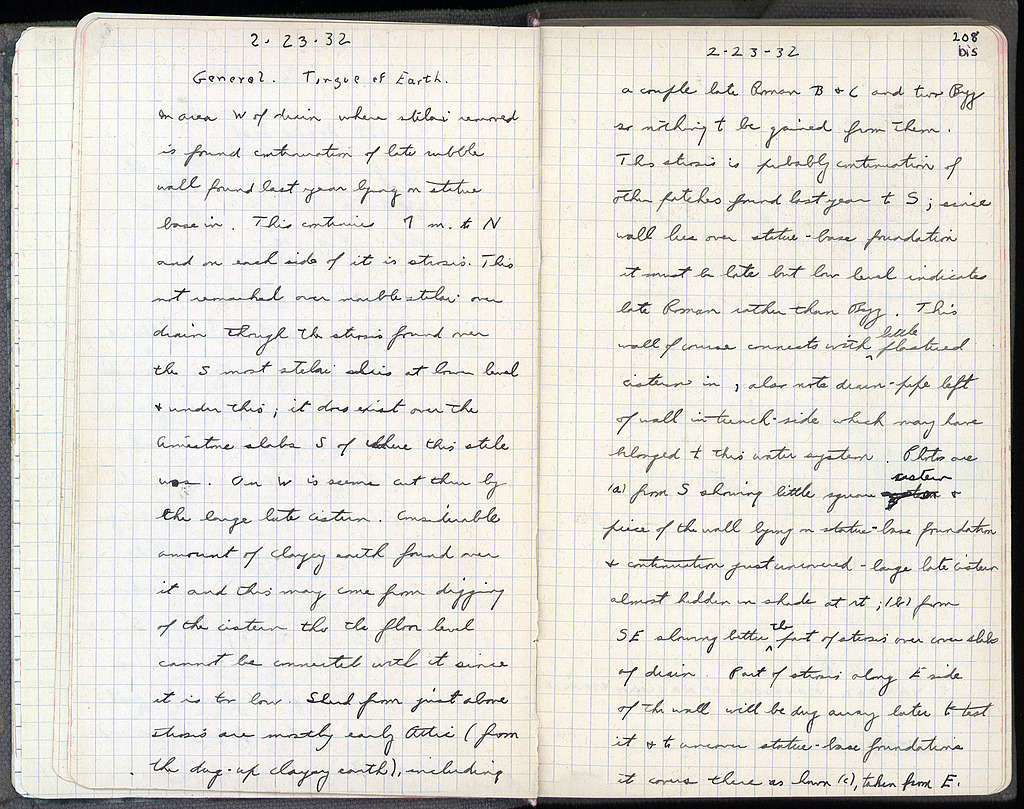 2.23.32
General. Tongue of Earth.
In area W of drain where stelai removed
is found continuation of late rubble
wall found last year lying on statue
base in. This continues 7 m. to N
and on each side of it is strosis. This
not remarked over marble stelai over
drain though the strosis found over
the S most stelai at lower level
& under this; it does exist over the
limestone slabs S of where this stele
was. On W is seems cut thru by
the large late cistern. Considerable
amount of clayey earth found over
it and this may come from digging
of the cistern tho the floor level
cannot be connected with it since
it is too low. Sherd from just above
strosis are mostly early Attic (from
the dug-up clayey earth), including
208
bis
2-23-32
a couple late Roman B & C and two Byz
so nothing to be gained from them.
This strosis is probably continuation of
other patches found last year to S; since
wall lies over statue-base foundation
it must be late but low level indicates
late Roman rather than Byz. This
wall of course connects with little plastered
cistern in, also note drain-pipe left
of wall in trench-side which may have
belonged to this water system. Photos are
(a) from S showing little square cistern &
piece of the wall lying on statue-base foundation
& continuation just uncovered - large late cistern
almost hidden in shade at rt; (b) from
SE showing better the part of strosis over cover slabs
of drain. Part of strosis along E side
of the wall will be dug away later to test
it & to uncover statue-base foundations
it covers there as shown (c), taken from E.